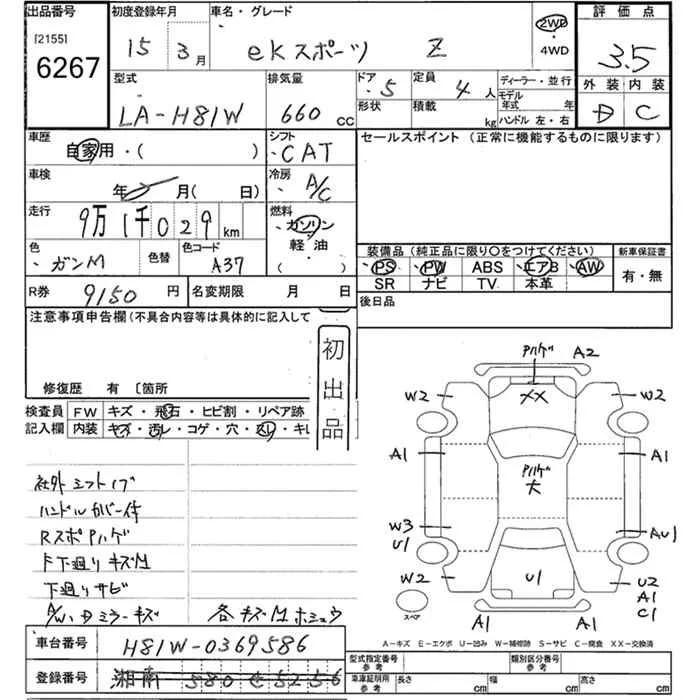 出品番号
[2155]
6267
初度登録年月
15 3月
車名・グレード
ekスポーツ Z
2WD
・
4WD
評価点
3.5
外装 内装
D C
型式
LA-H81W
排気量
660 cc
ドア ・5
定員 4人
形状
積載 kg
ディーラー・並行
モデル
年式 年
ハンドル 左・右
車歴
自家用・( )
シフト
・CAT
セールスポイント (正常に機能するものに限ります)
車検
年 月( 日)
冷房
・A/C
走行
9万1千029 km
燃料
・ガソリン
軽油
・( )
色
・ガンM
色替
色コード
A37
装備品 (純正品に限り○をつけてください)
・PS ・PW ABS ・エアB ・AW
SR ナビ TV 本革
新車保証書
有・無
R券 9150 円
名変期限 月 日
後日品
注意事項申告欄 (不具合内容等は具体的に記入して
初出品
修復歴 有 〔箇所
検査員
記入欄
FW キズ・飛石・ヒビ割・リペア跡
内装 キズ・汚レ・コゲ・穴・スレ・キレ
社外シフトノブ
ハンドルカバー付
RスポPハゲ
F下廻りキズM
下廻りサビ
A/W、Dミラーキズ
各キズMホシュウ
車台番号 H81W-0369586
登録番号 湘南 580 そ 5256
Pハゲ A2
XX
W2 W2
A1 A1
Pハゲ
大
W3
U1
AU1
W2
U1
U2
A1
C1
スペア
A1 A1
A－キズ E－エクボ U－凹み W－補修跡 S－サビ C－腐食 XX－交換済
型式指定番号
参考
類別区分番号
参考
車庫証明用
参考
長さ cm
幅 cm
高さ cm